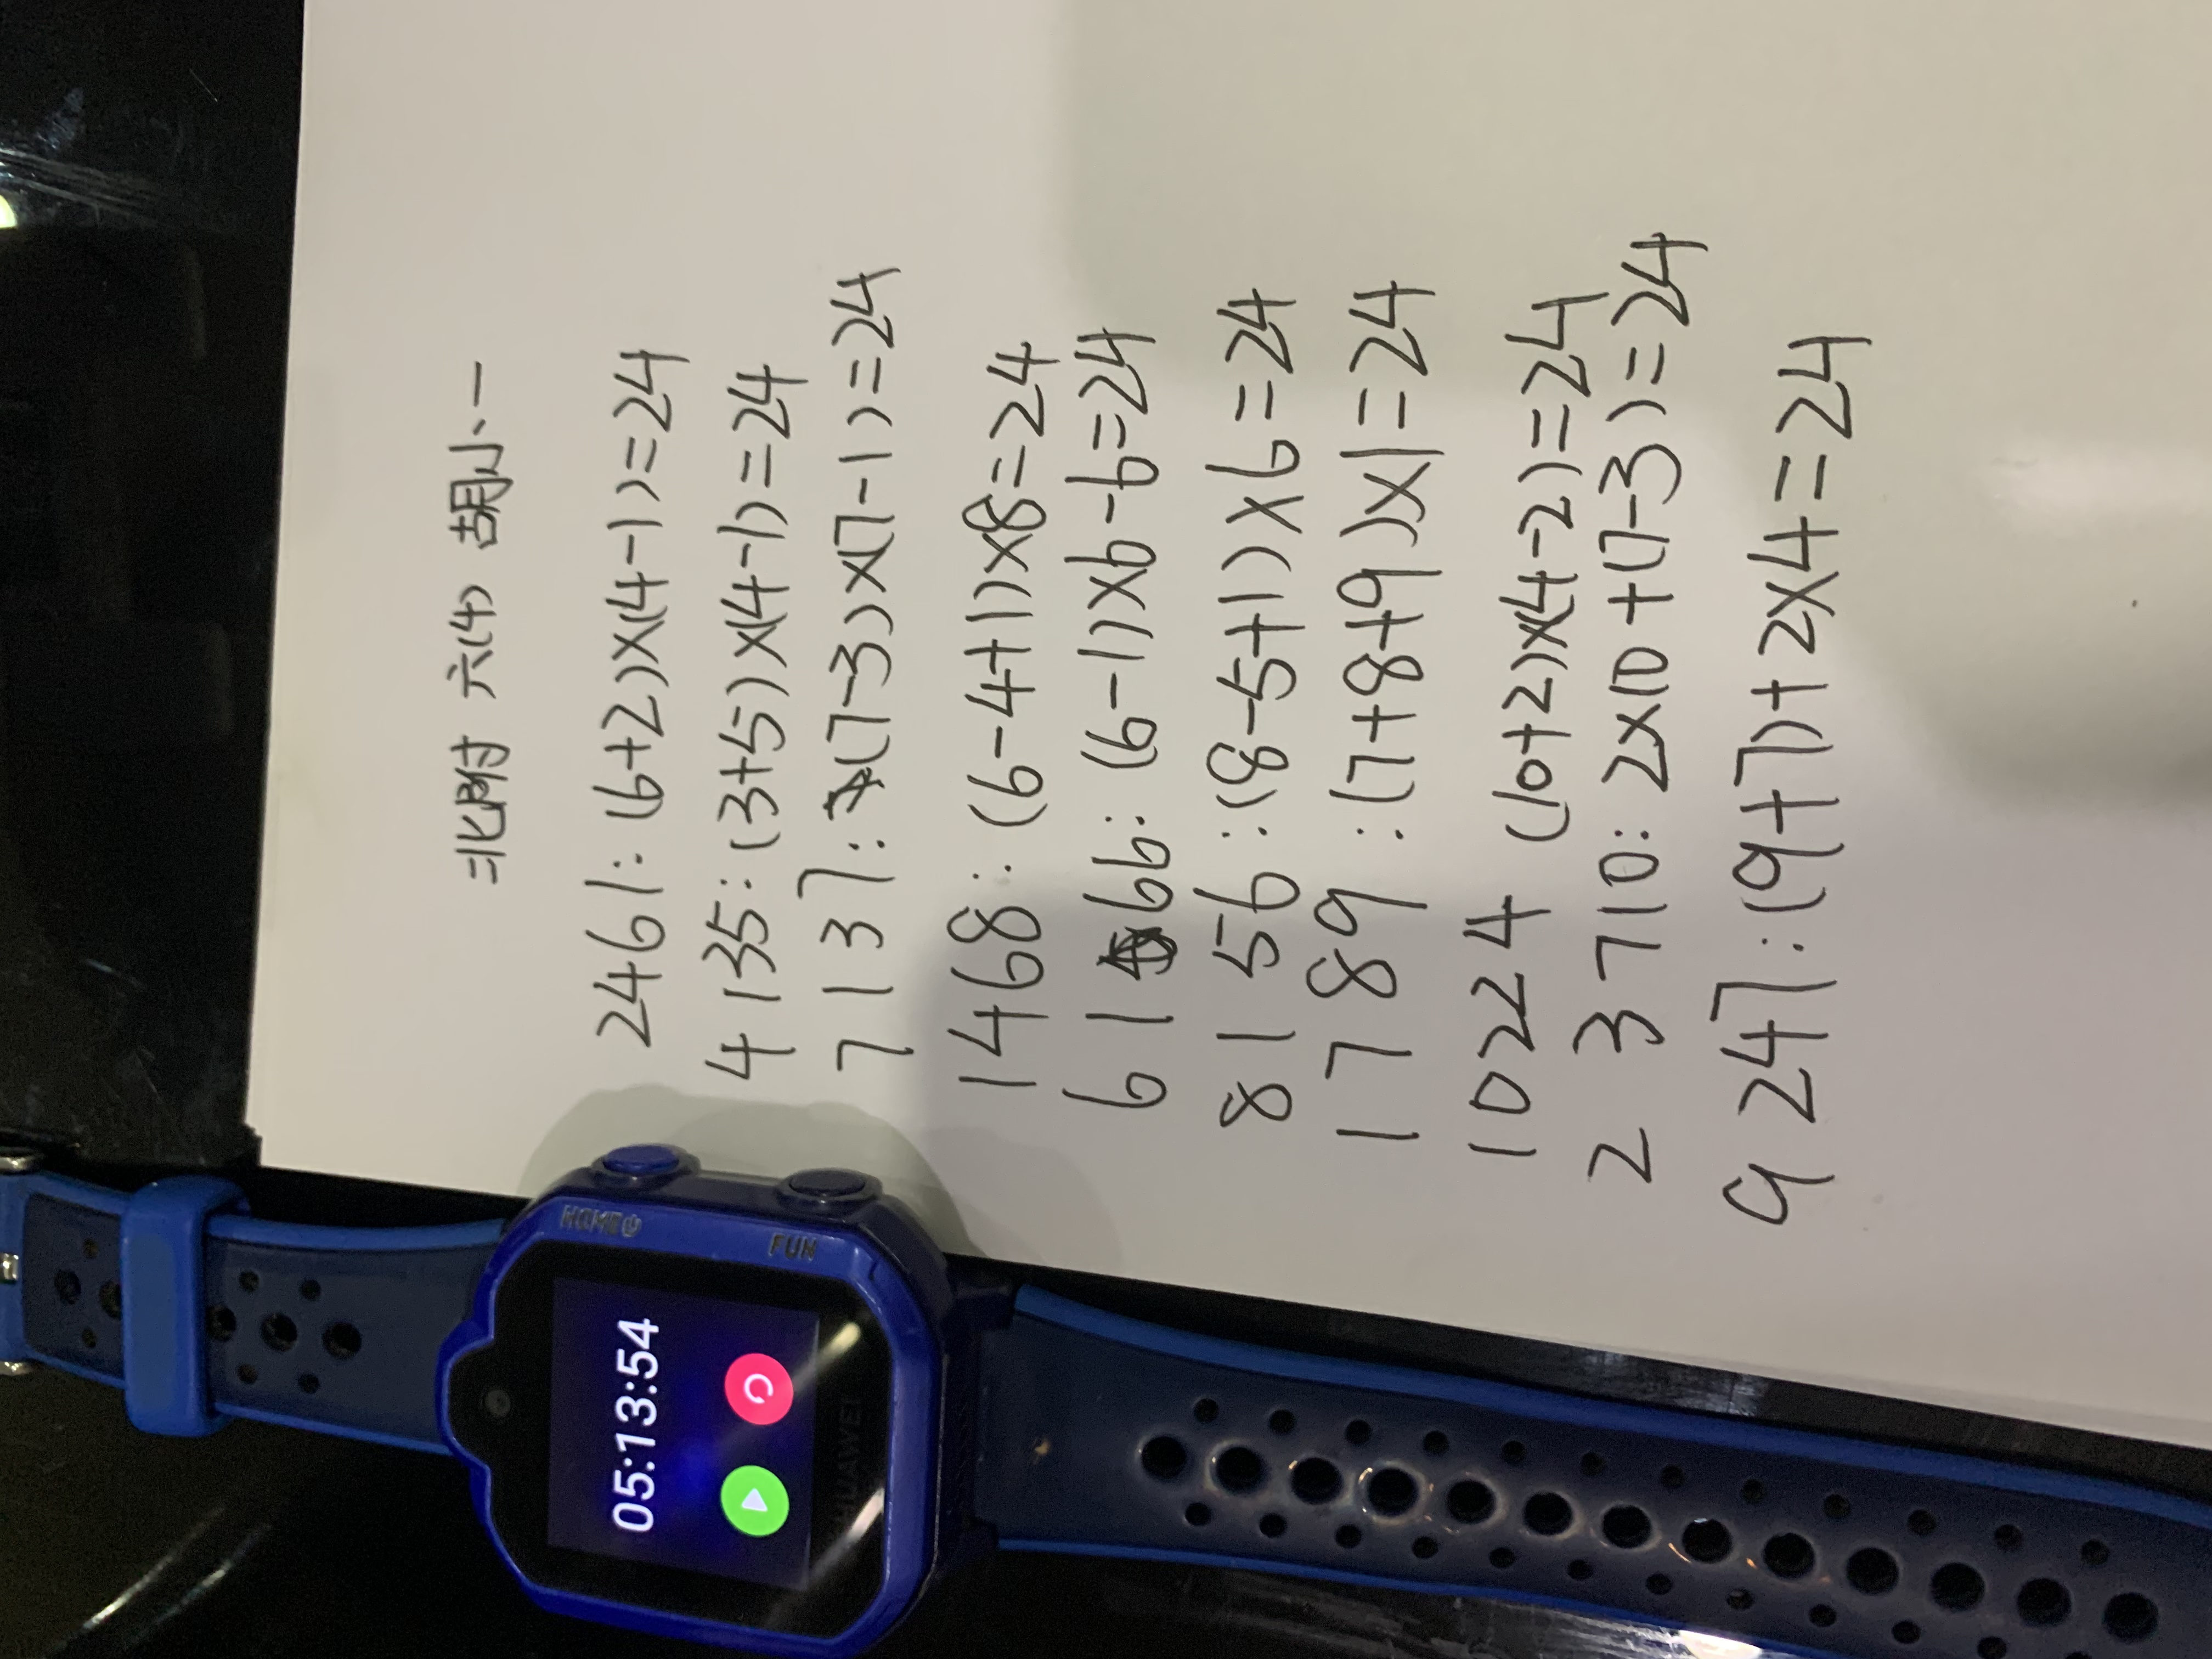 北附 六(4) 胡小一
2461: (6+2)×(4-1)=24
4 135: (3+5)×(4-1)=24
7 137: (7-3)×(7-1)=24
1468: (6-4+1)×8=24
6 1 66: (6-1)×6-6=24
8 1 56: (8-5+1)×6=24
1 7 89: (7+8+9)×1=24
10224 (10+2)×(4-2)=24
2 3 710: 2×10+(7-3)=24
9 247: (9+7)+2×4=24
HOME
FUN
05:13:54
HUAWEI